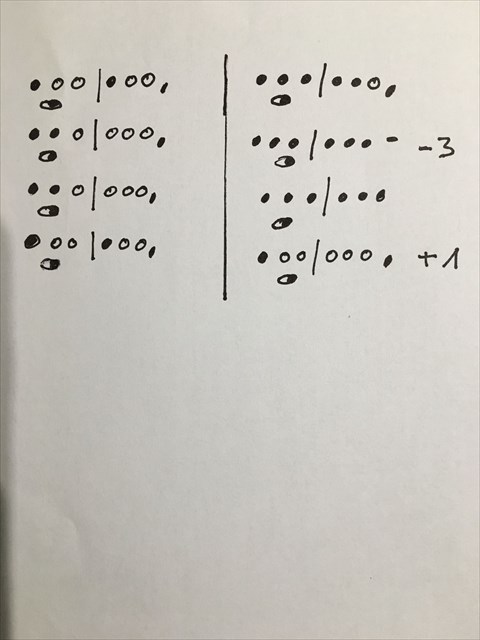 -3
+1